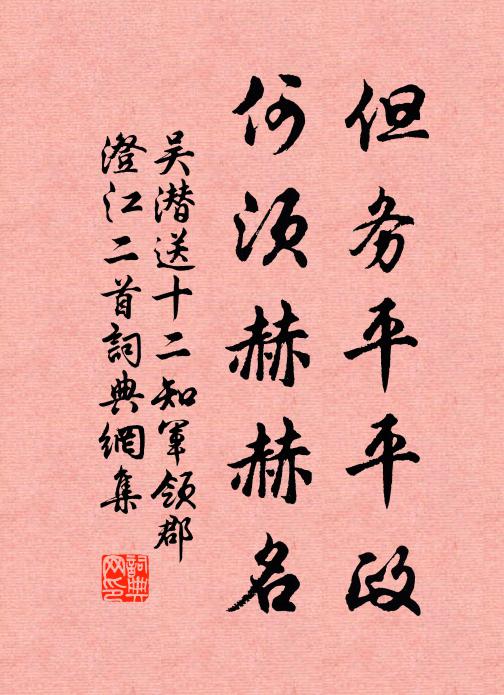 但务平平政
何须赫赫名
吴潜送十二知军领郡
澄江二首詞典網集
詞典网印